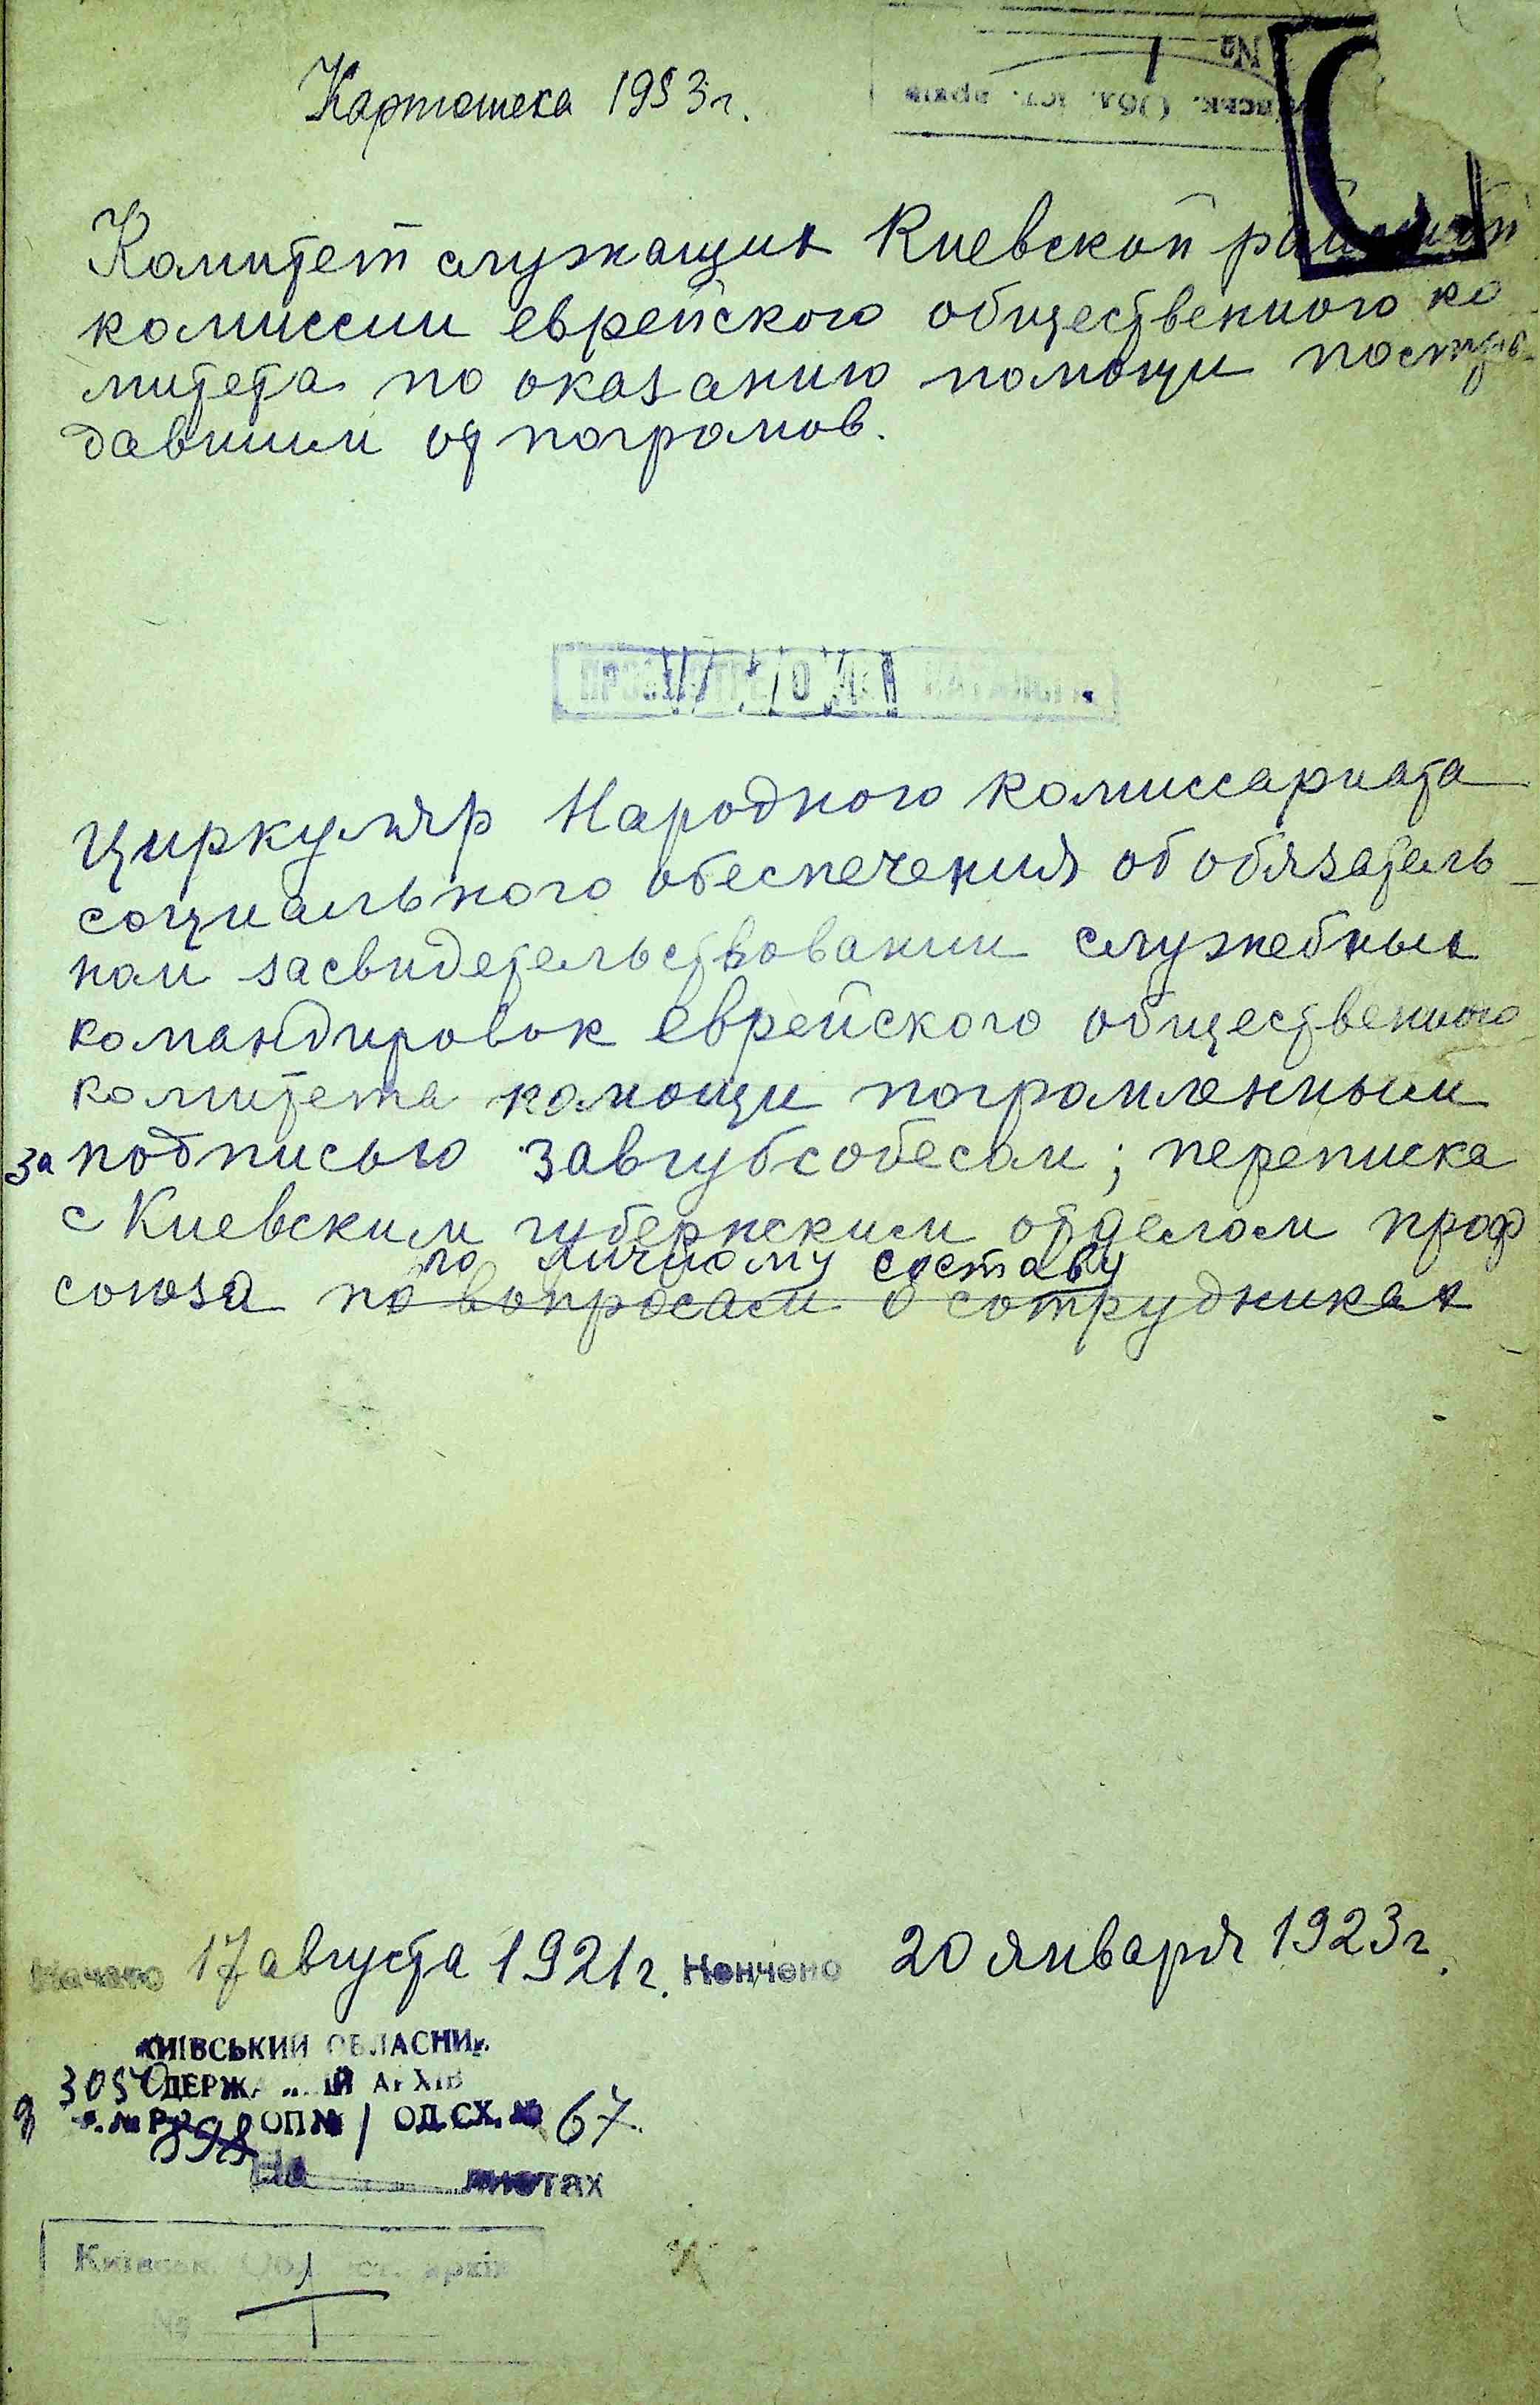 Картотека 1953 г.
№ 1
Комитет служащих Киевской районной
комиссии еврейского общественного ко
митета по оказанию помощи постра-
давшим от погромов.
Циркуляр Народного комиссариата
социального обеспечения об обязатель-
ном засвидетельствовании служебных
командировок еврейского общественного
комитета помощи погромленным
за подписью Завгубсобесом; переписка
с Киевским губернским отделом проф
по личному составу
союза по вопросам о сотрудниках
Начато 17 августа 1921 г. Кончено 20 января 1923 г.
КИЇВСЬКИЙ ОБЛАСНИЙ
3050 ДЕРЖАВНИЙ АРХІВ
Ф. № Р ОП № 1 ОД. СХ. № 67.
На листах
Київськ. Обл. іст. архів
№ 1